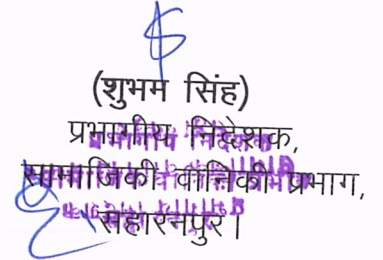 (शुभम सिंह)
प्रभागीय निदेशक,
सामाजिकी वानिकी प्रभाग,
सहारनपुर।